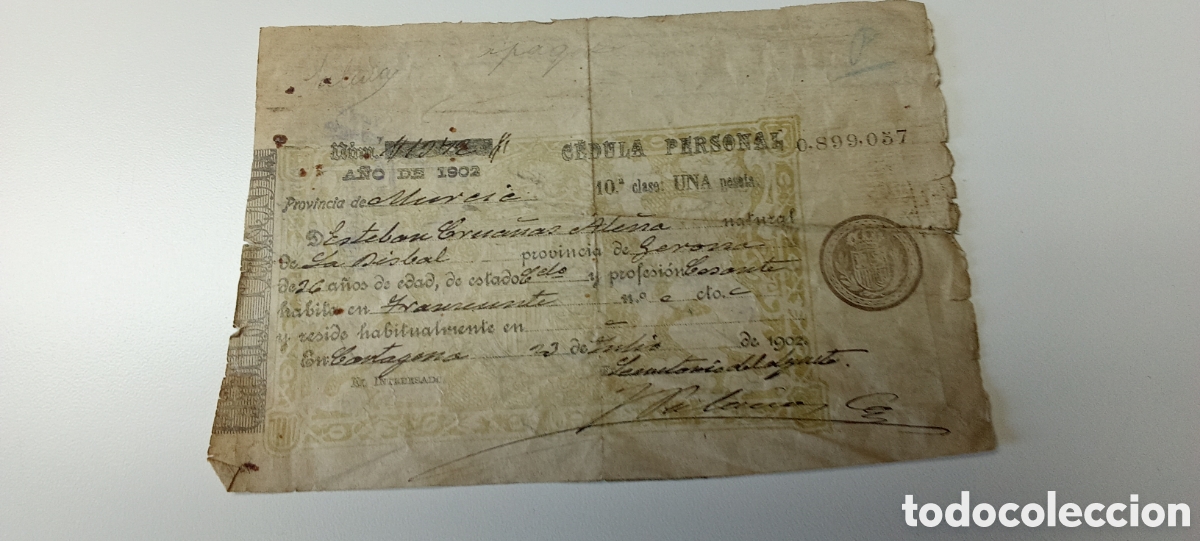 Núm.
CÉDULA PERSONAL 0.899.057
AÑO DE 1902
10.ª clase: UNA peseta.
Provincia de Murcia
D Esteban Cruañas natural
de La Bisbal provincia de Gerona
de 26 años de edad, de estado y profesión Cesante
habita en Transeunte n.º cto.
y reside habitualmente en
En Cartagena 23 de Julio de 1902.
EL INTERESADO
todocoleccion